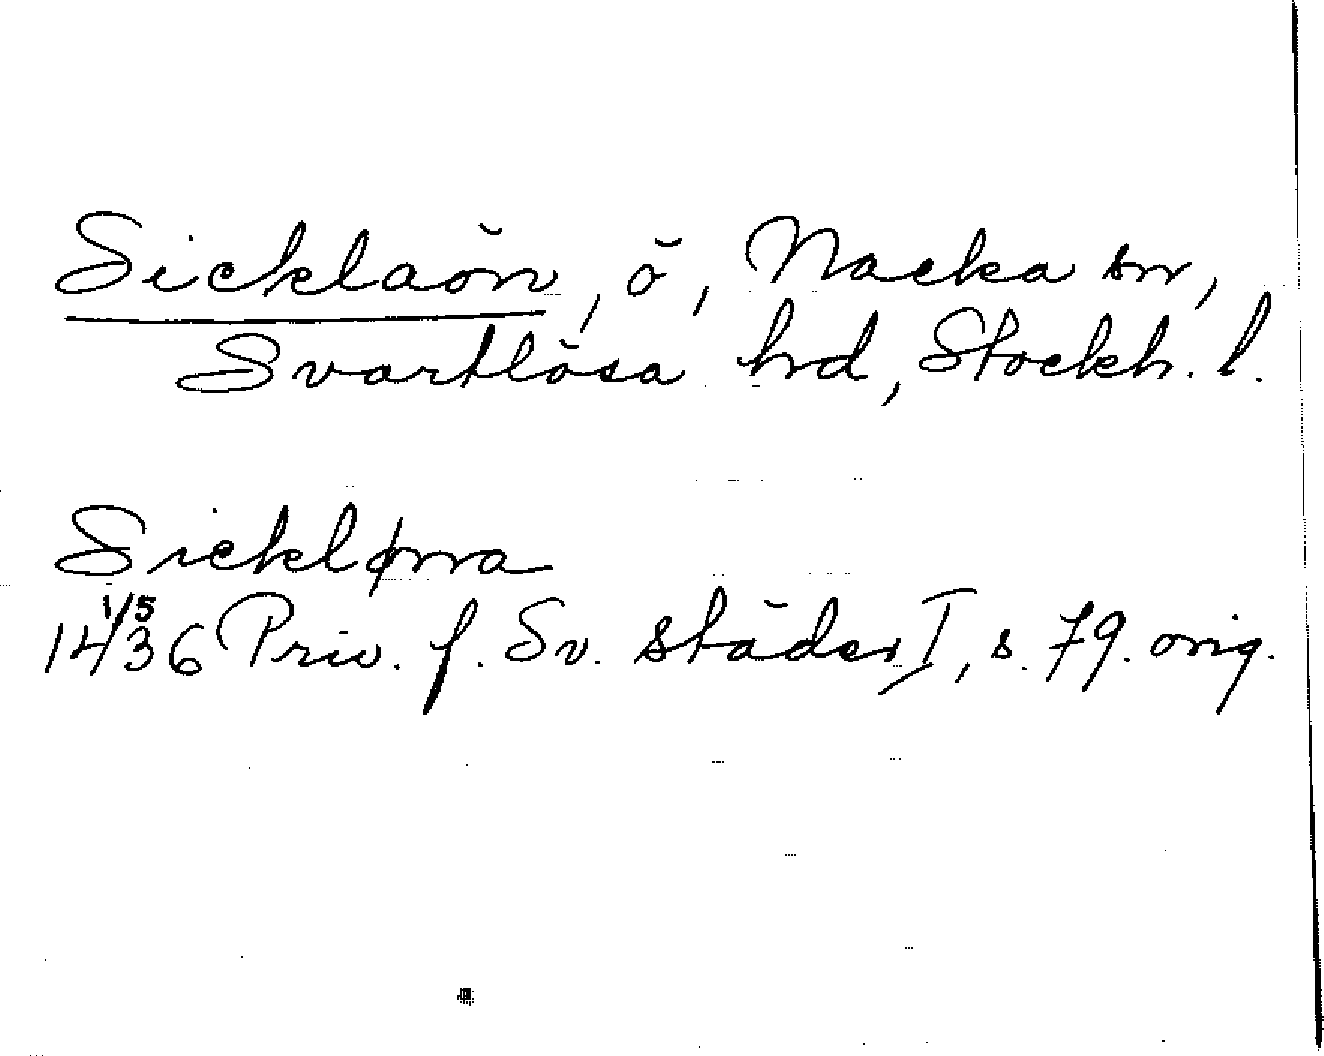 Sicklaön, ö, Nacka sn,
Svartlösa hd, Stockh. l.
Sickløma
14 1/5 36 Priv. f. Sv. städer I, s. 79. orig.